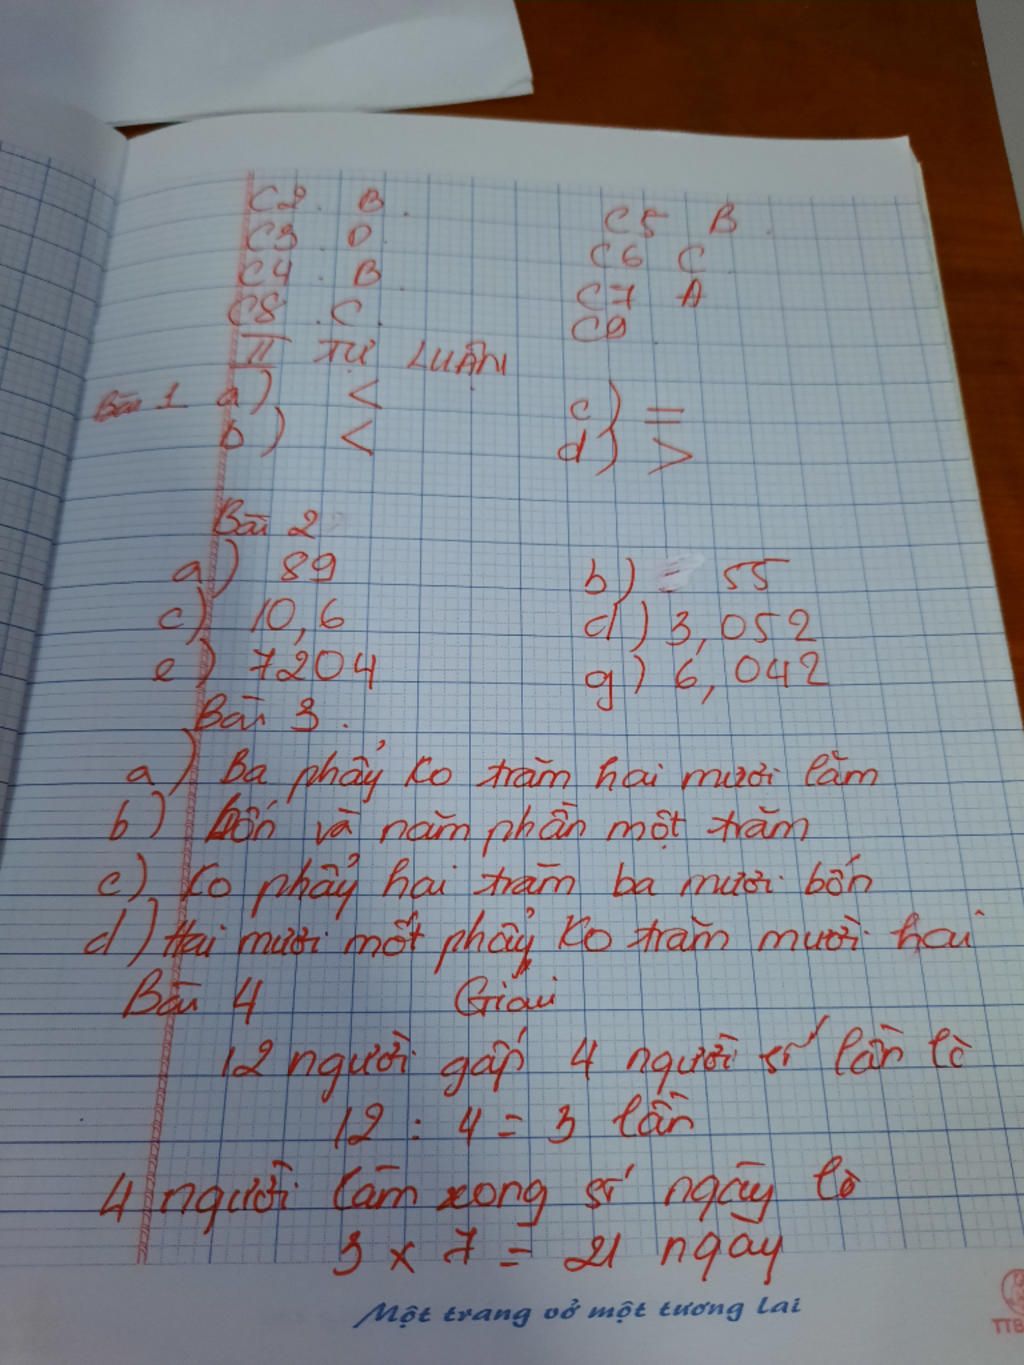 C2. B.
C5 B.
C3. D
C6 C
C4. B
C7 A
C8. C
C9
II TỰ LUẬN
Bài 1 a) <
c) =
b) <
d) >
Bài 2
a) 89
b) 55
c) 10,6
d) 3,052
e) 7204
g) 6,042
Bài 3.
a) Ba phẩy ko trăm hai mươi lăm
b) Bốn và năm phần một trăm
c) Ko phẩy hai trăm ba mươi bốn
d) Hai mươi mốt phẩy ko trăm mười hai
Bài 4 Giải
12 người gấp 4 người số lần là
12 : 4 = 3 lần
4 người làm xong số ngày là
3 x 7 = 21 ngày
Một trang vở một tương lai
TTB